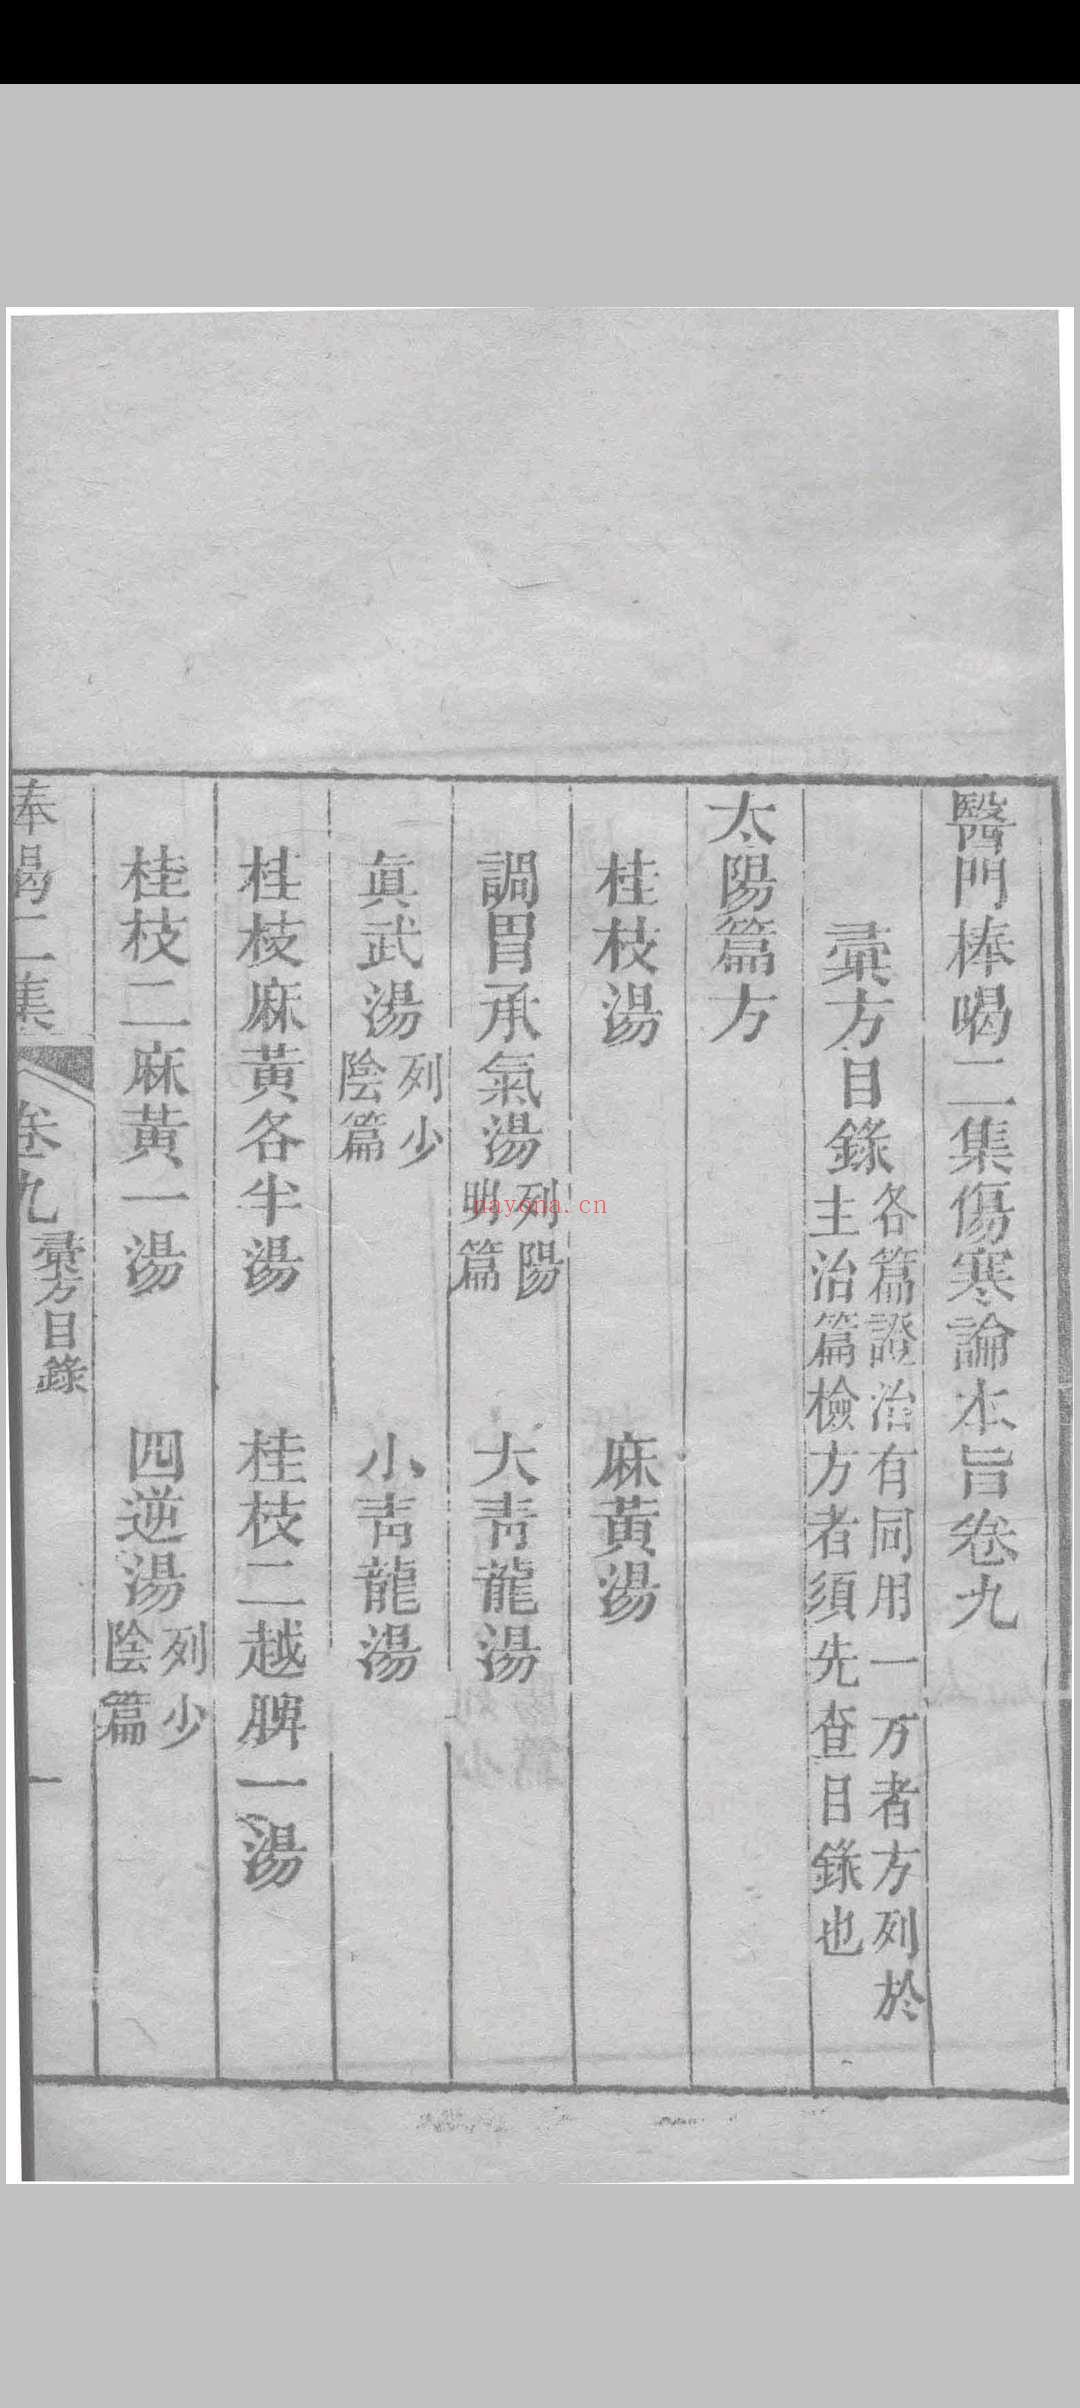 醫門棒喝二集傷寒論本旨卷九
彚方目錄各篇證治有同用一方者方列於
主治篇檢方者須先查目錄也
太陽篇方
桂枝湯 麻黃湯
調胃承氣湯列陽明篇 大靑龍湯
眞武湯列少陰篇 小靑龍湯
桂枝麻黃各半湯 桂枝二越脾一湯
桂枝二麻黃一湯 四逆湯列少陰篇
棒喝二集 卷九 彚方目錄 一
nayona.cn